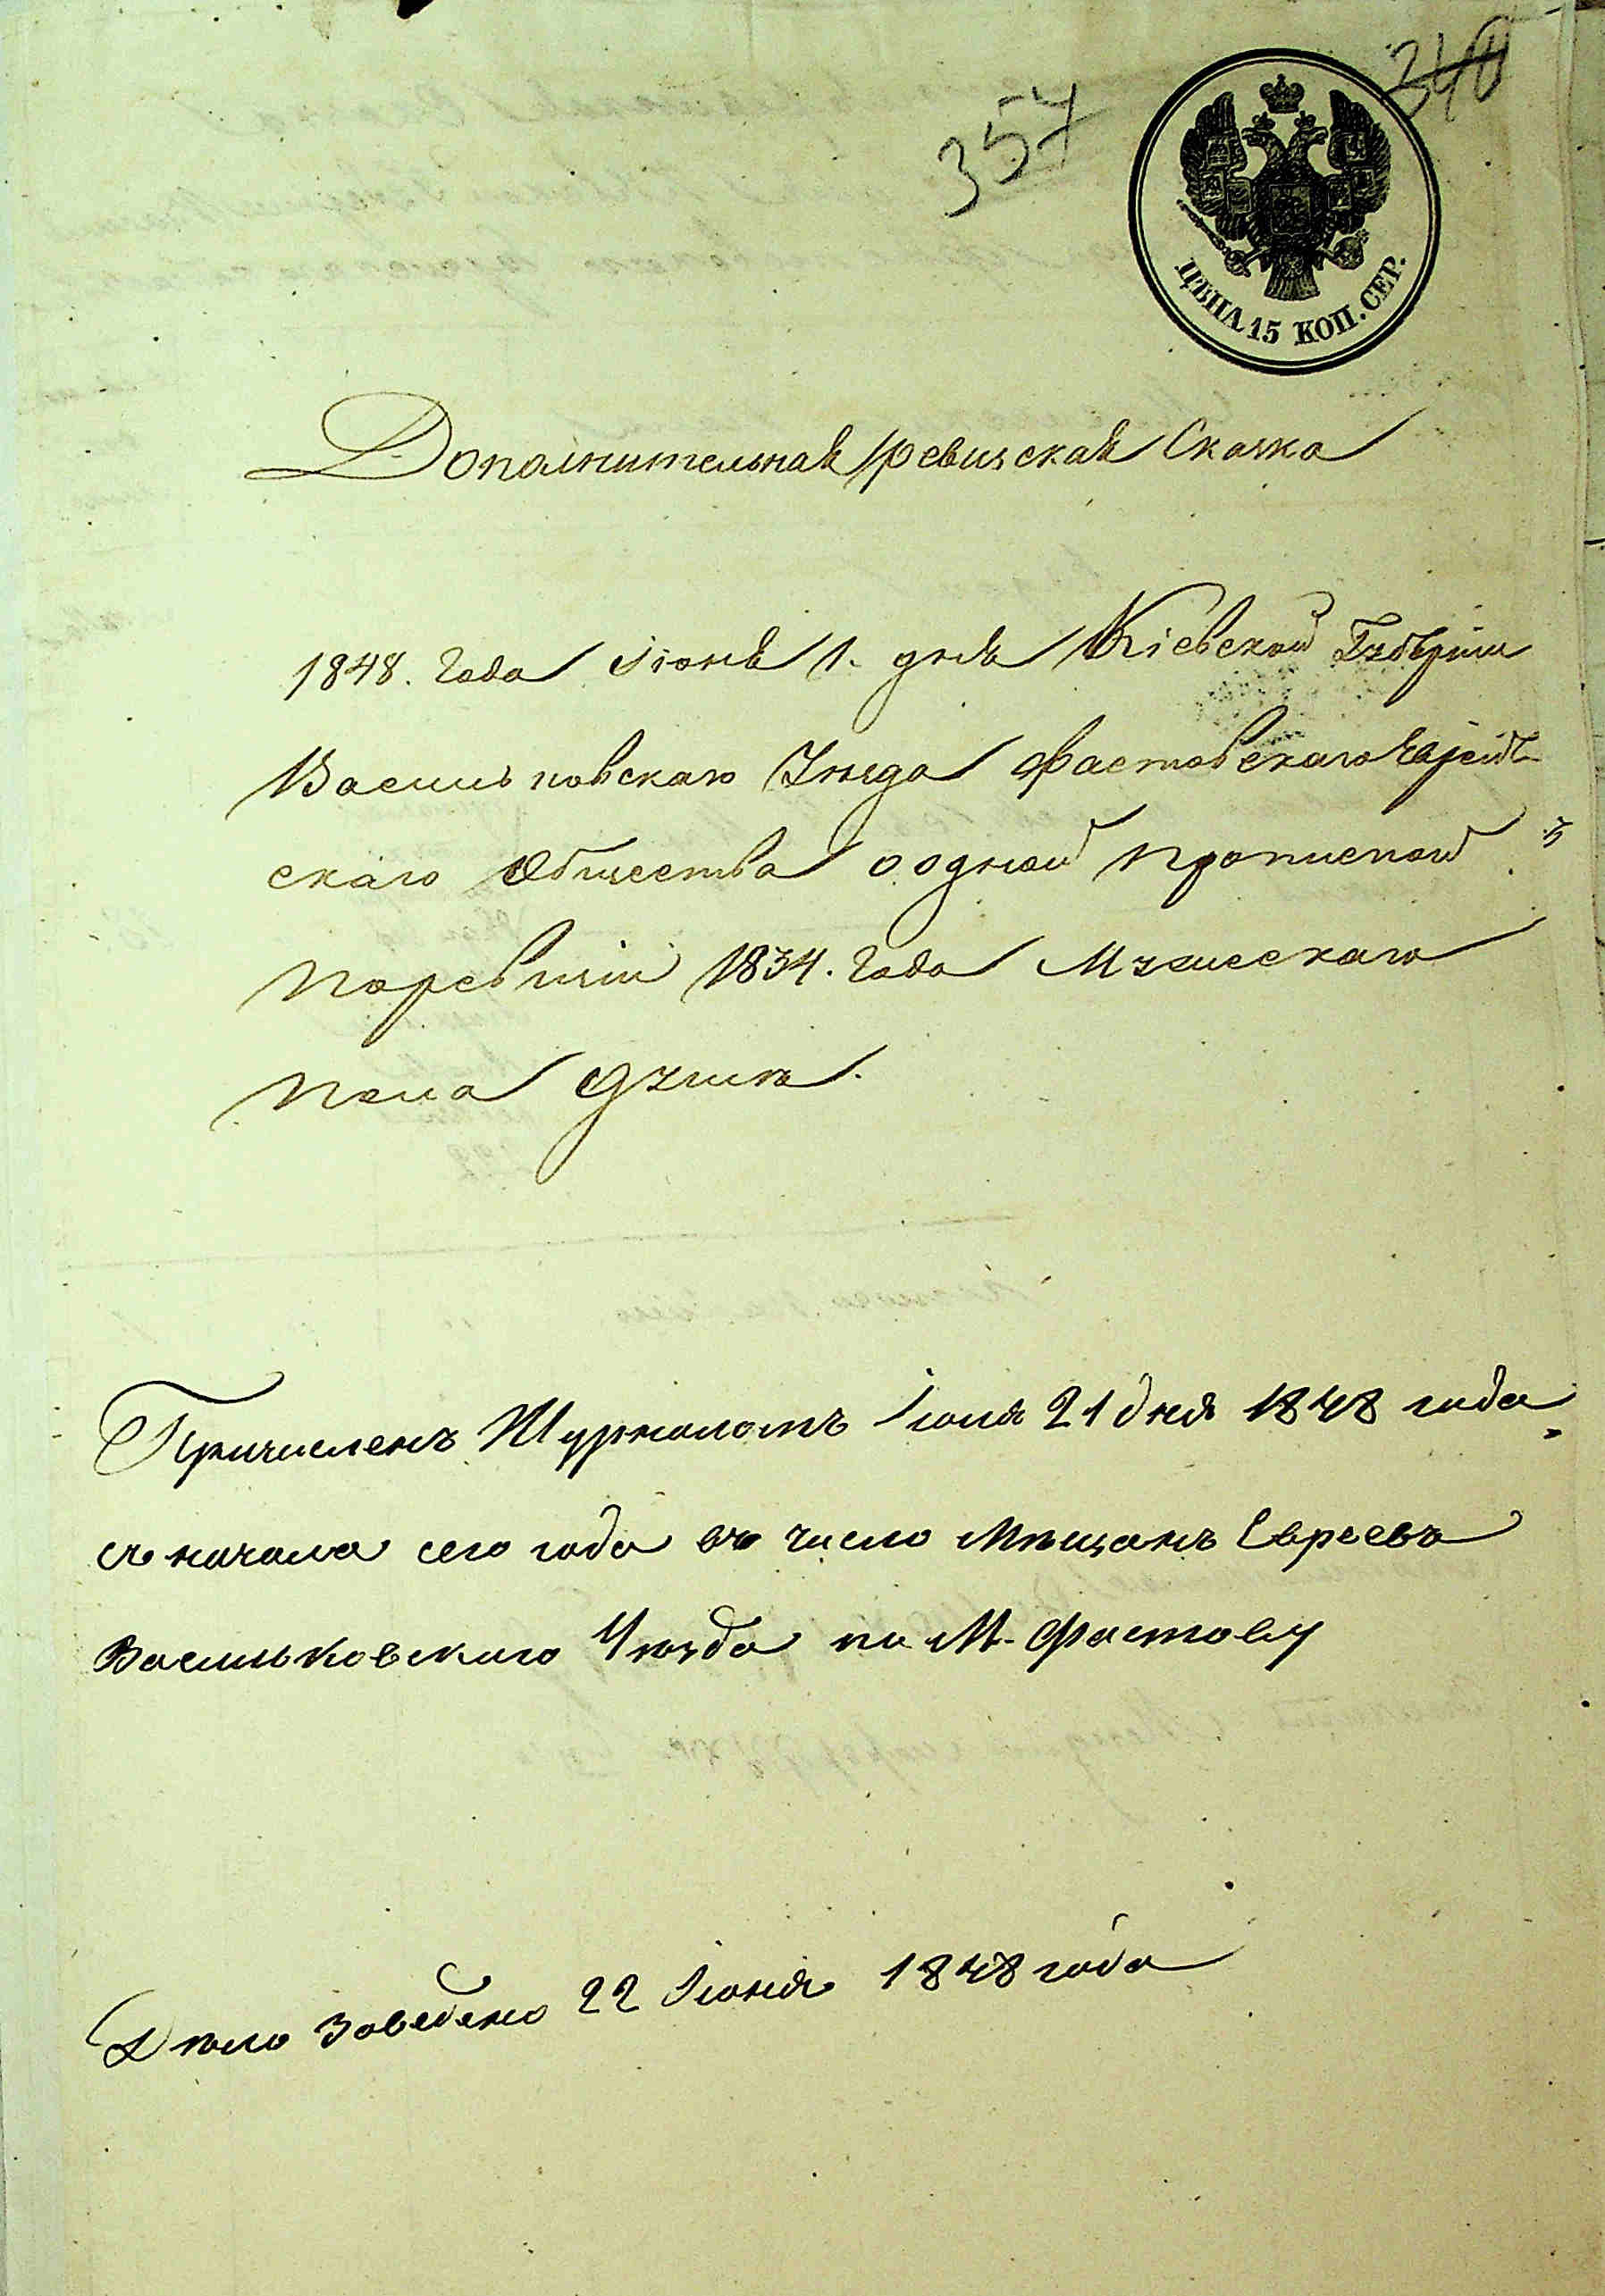 357
340
ЦѢНА 15 КОП. СЕР.
Дополнительная ревизская Сказка
1848. года Іюня 1. дня Кіевской Губерніи
Васильковскаго Уѣзда Фастовскаго Еврей-
скаго Общества о одной прописной
по ревизіи 1834. года Мужескаго
пола душѣ.
Причисленъ Журналомъ Іюля 21 дня 1848 года
съ начала сего года въ число Мѣщанъ Евреевъ
Васильковскаго Уѣзда по М. Фастову
Дѣло заведено 22 Іюня 1848 года